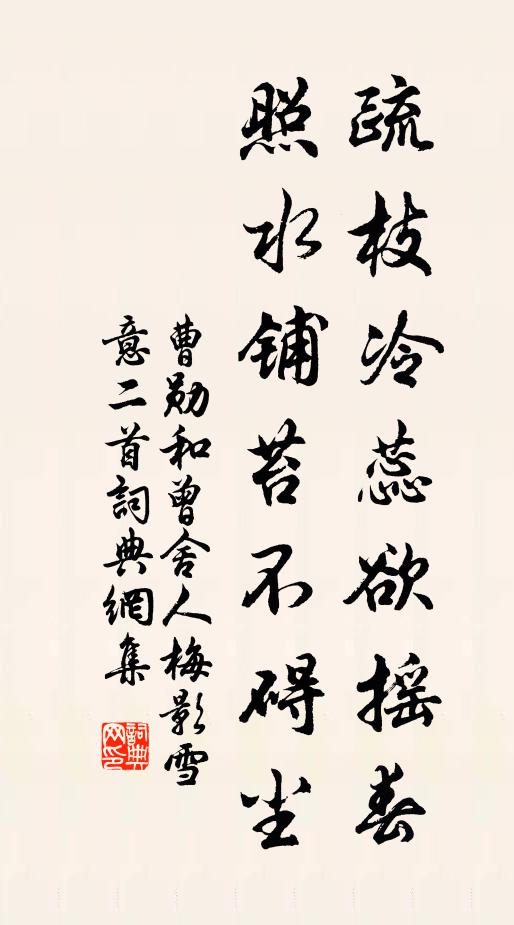 疏枝冷蕊欲摇春
照水铺苔不碍尘
曹勋和曾舍人梅影雪
意二首詞典網集
詞典网印